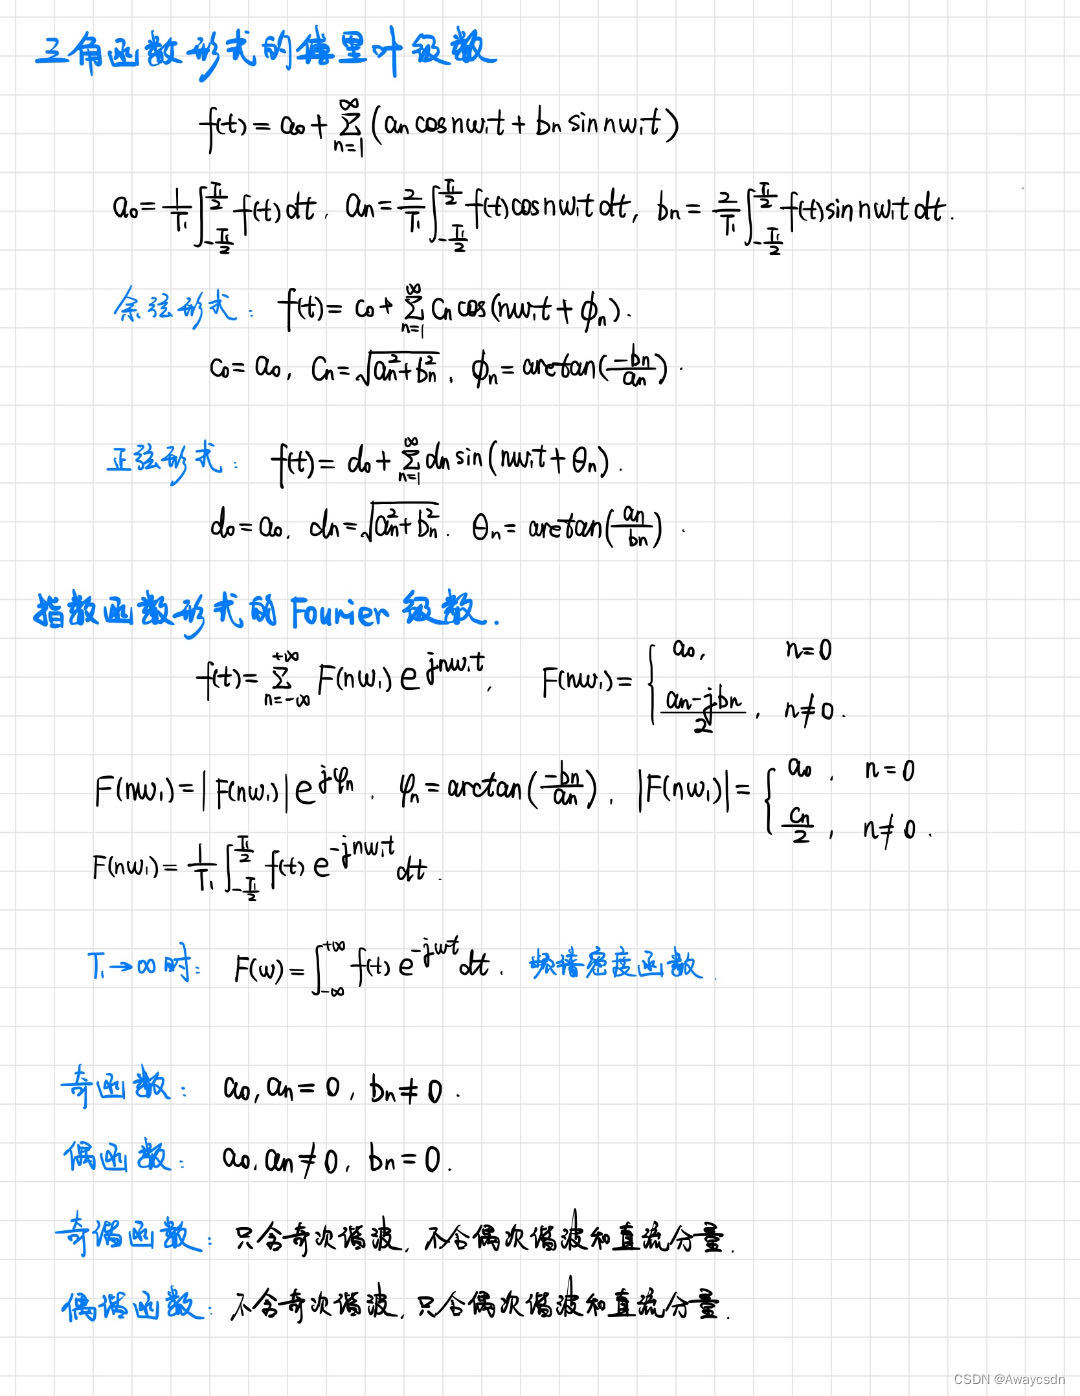 三角函数形式的傅里叶级数
f(t) = a₀ + ∑_{n=1}^{∞} (aₙ cos nω₁t + bₙ sin nω₁t)
a₀ = 1/T₁ ∫_{-T₁/2}^{T₁/2} f(t) dt, aₙ = 2/T₁ ∫_{-T₁/2}^{T₁/2} f(t) cos nω₁t dt, bₙ = 2/T₁ ∫_{-T₁/2}^{T₁/2} f(t) sin nω₁t dt.
余弦形式: f(t) = c₀ + ∑_{n=1}^{∞} cₙ cos(nω₁t + ϕₙ).
c₀ = a₀, cₙ = √(aₙ² + bₙ²), ϕₙ = arctan(-bₙ/aₙ).
正弦形式: f(t) = d₀ + ∑_{n=1}^{∞} dₙ sin(nω₁t + θₙ).
d₀ = a₀, dₙ = √(aₙ² + bₙ²). θₙ = arctan(aₙ/bₙ).
指数函数形式的 Fourier 级数.
f(t) = ∑_{n=-∞}^{+∞} F(nω₁) e^{jnω₁t}, F(nω₁) = { a₀, n=0
(aₙ - jbₙ)/2, n≠0.
F(nω₁) = |F(nω₁)| e^{jφₙ}, φₙ = arctan(-bₙ/aₙ), |F(nω₁)| = { a₀, n=0
cₙ/2, n≠0.
F(nω₁) = 1/T₁ ∫_{-T₁/2}^{T₁/2} f(t) e^{-jnω₁t} dt.
T₁→∞时: F(ω) = ∫_{-∞}^{+∞} f(t) e^{-jωt} dt. 频谱密度函数.
奇函数: a₀, aₙ = 0, bₙ ≠ 0.
偶函数: a₀, aₙ ≠ 0, bₙ = 0.
奇谐函数: 只含奇次谐波, 不含偶次谐波和直流分量.
偶谐函数: 不含奇次谐波, 只含偶次谐波和直流分量.
CSDN @Awaycsdn